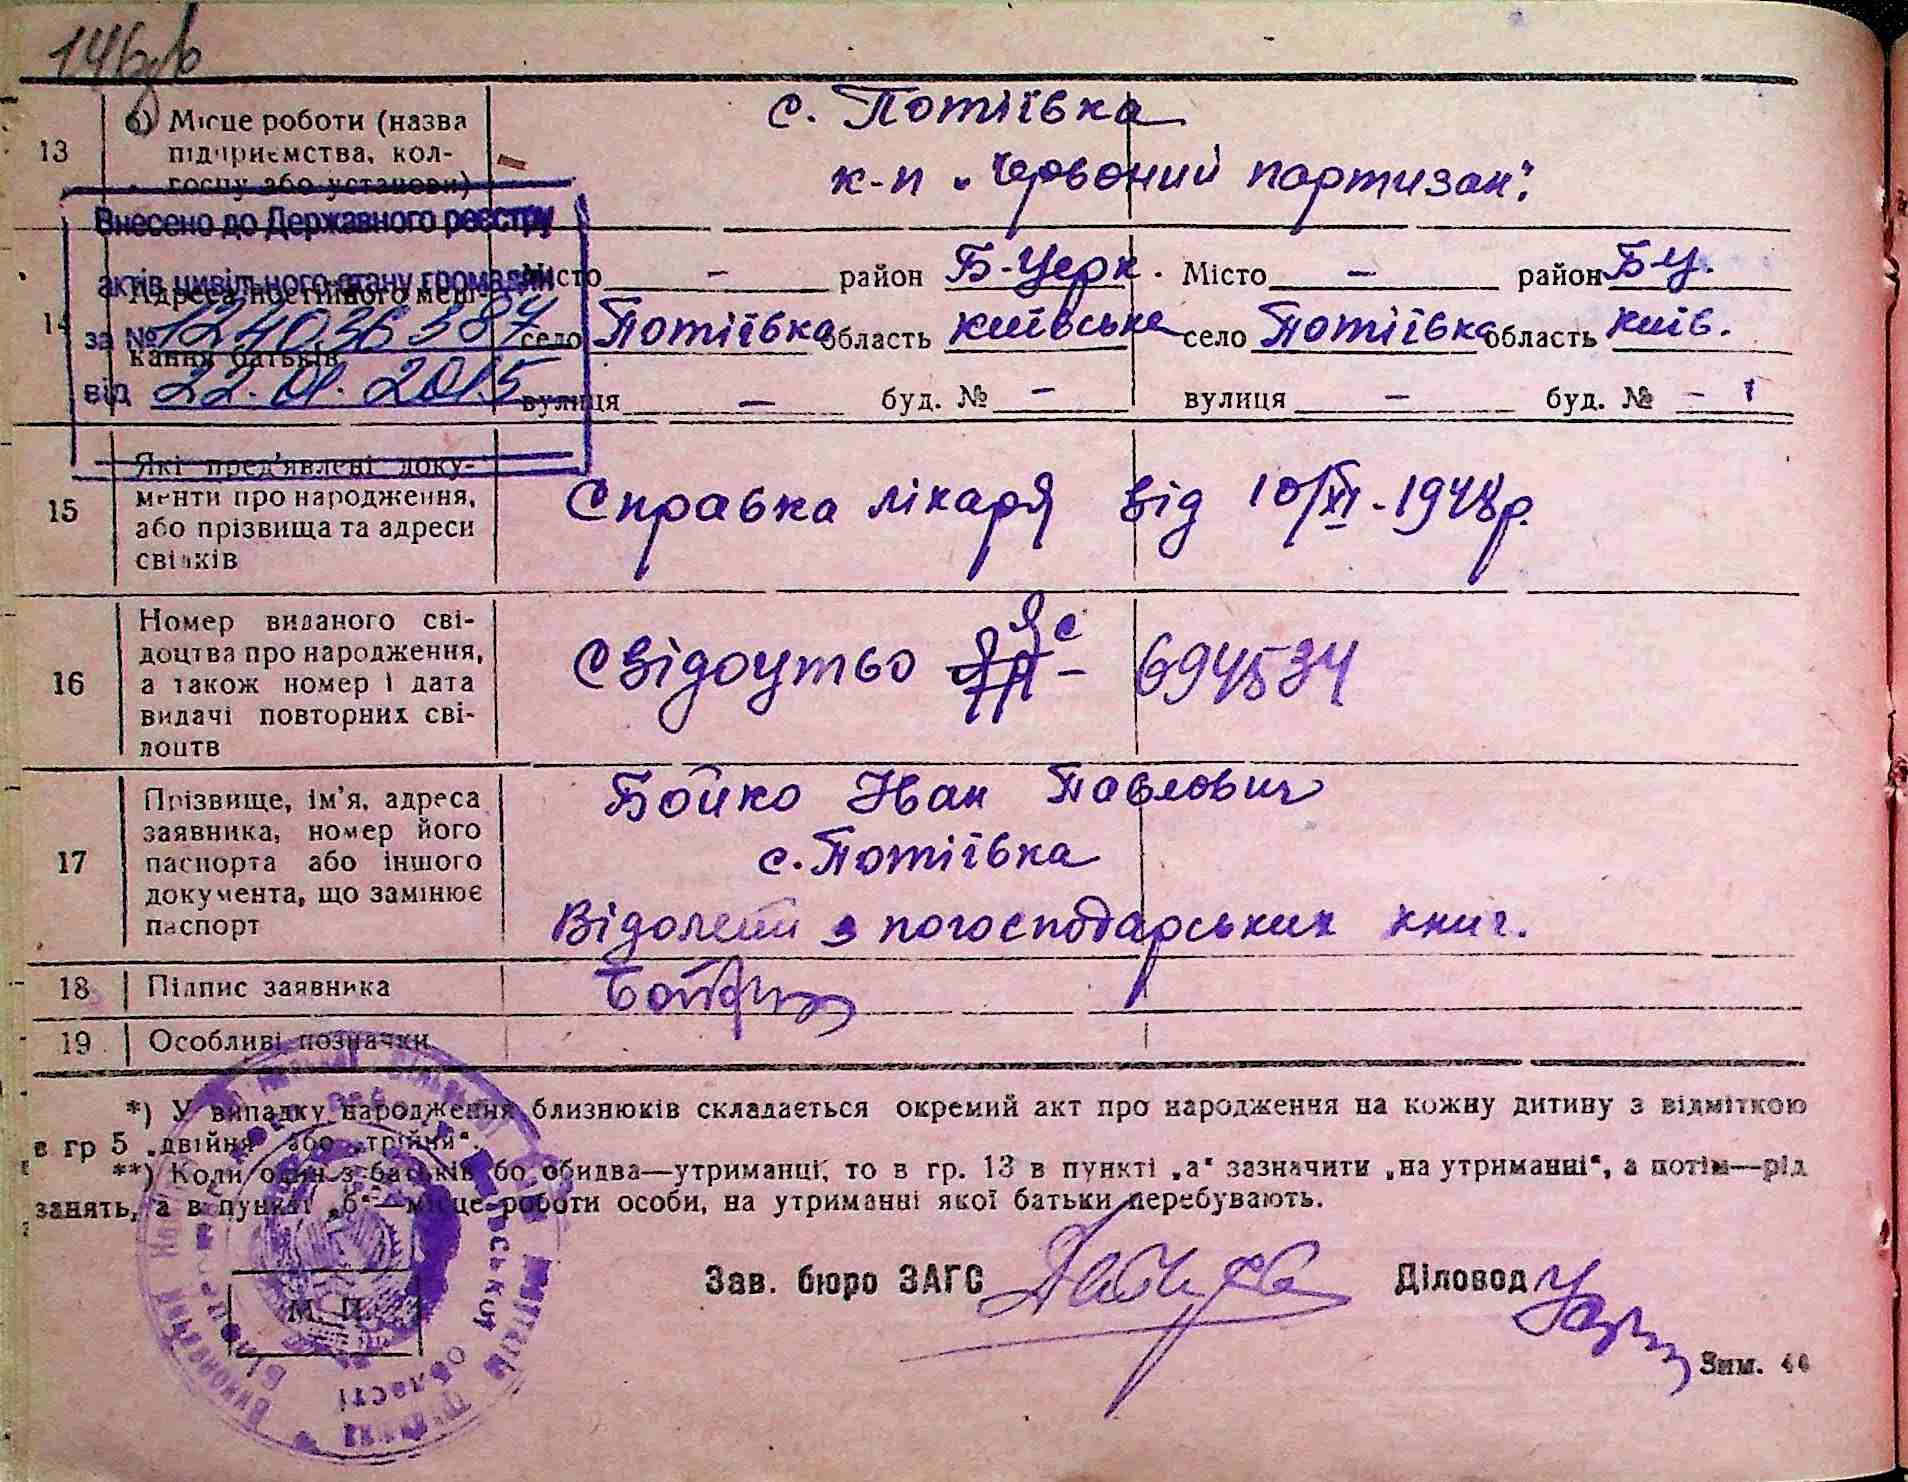 146
13 б) Місце роботи (назва с. Потіївка
підприємства, кол-
госпу або установи) к-п „Червоний партизан".
Внесено до Державного реєстру
актів цивільного стану громадян
за № 1 24036 387
від 22.01.2015
14 Адреса постійного меш-
кання батьків
Місто — район Б-Церк. Місто — район Б-Ц.
село Потіївка область Київська село Потіївка область Київ.
вулиця — буд. № — вулиця — буд. № —
15 Які пред'явлені доку-
менти про народження, Справка лікаря від 10/XI-1948р.
або прізвища та адреси
свідків
16 Номер виданого сві-
доцтва про народження, Свідоцтво ЯС - 694534
а також номер і дата
видачі повторних сві-
доцтв
17 Прізвище, ім'я, адреса Бойко Иван Павлович
заявника, номер його
паспорта або іншого с. Потіївка
документа, що замінює
паспорт з погосподарських книг.
18 Підпис заявника
19 Особливі позначки
*) У випадку народження близнюків складається окремий акт про народження на кожну дитину з відміткою
в гр 5 „двійня" або „трійня".
**) Коли один з батьків бо обидва—утриманці, то в гр. 13 в пункті „а" зазначити „на утриманні", а потім—рід
занять, а в пункті „б"—місце роботи особи, на утриманні якої батьки перебувають.
Зав. бюро ЗАГС Діловод
М. П.
області
Зим.